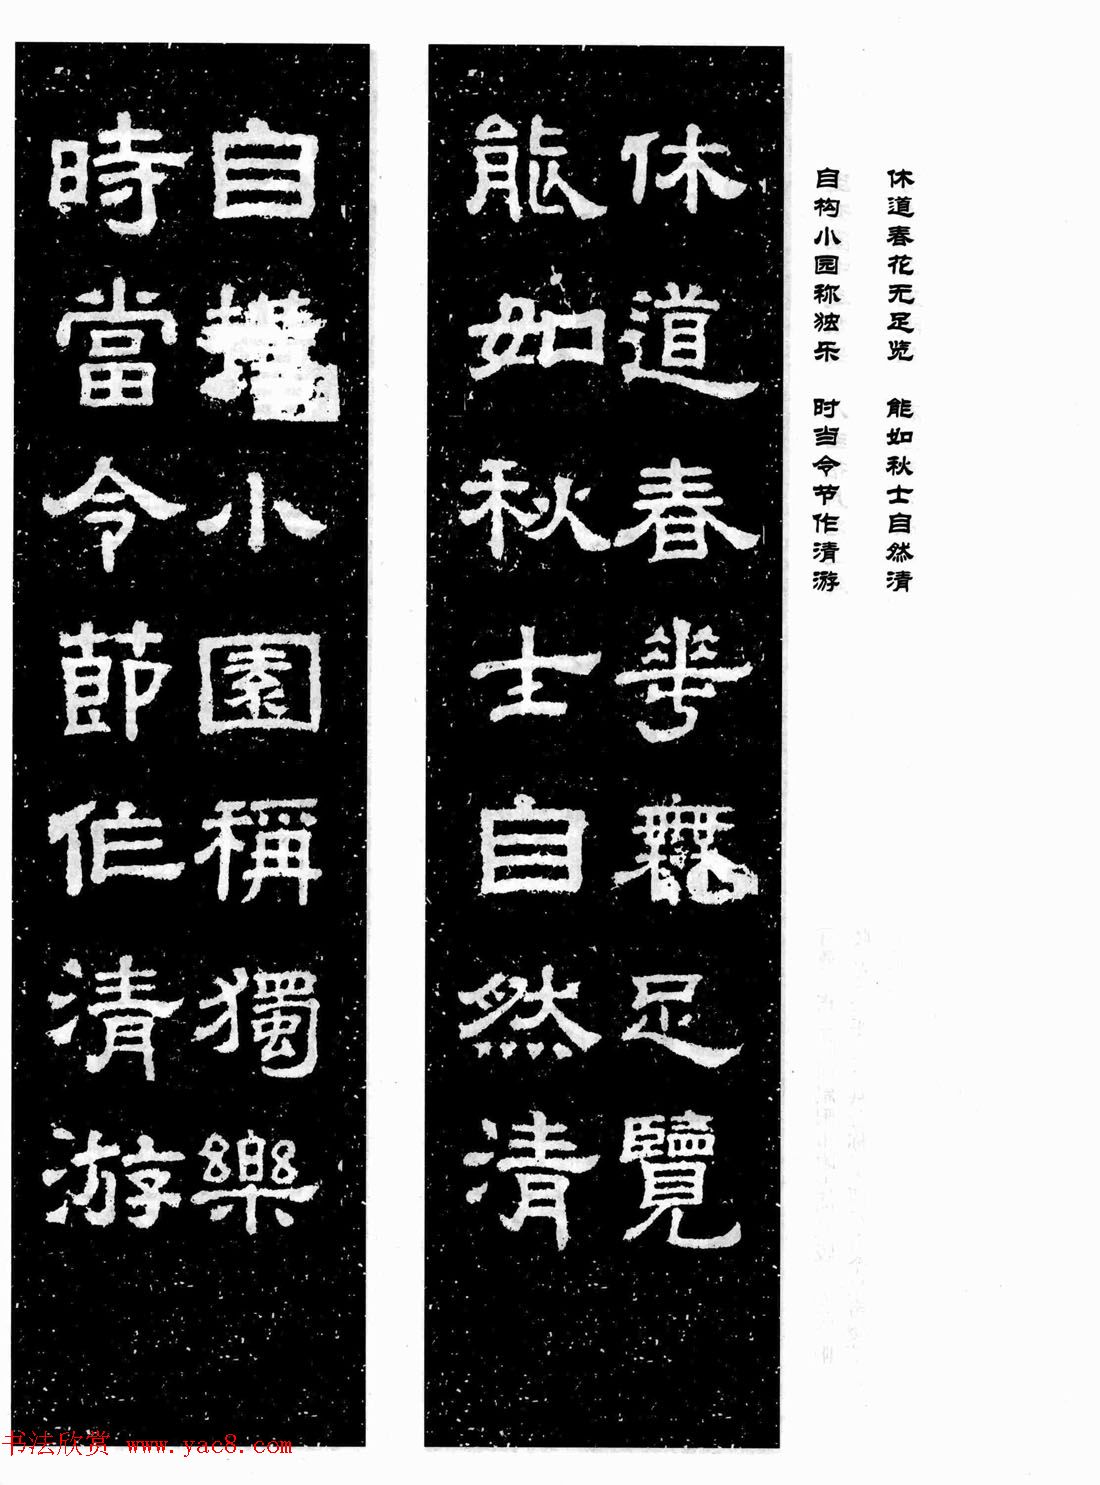 休道春花无足览　能如秋士自然清
自构小园称独乐　时当令节作清游
休道春華無足覽
能如秋士自然清
自構小園稱獨樂
時當令節作清游
书法欣赏 www.yac8.com